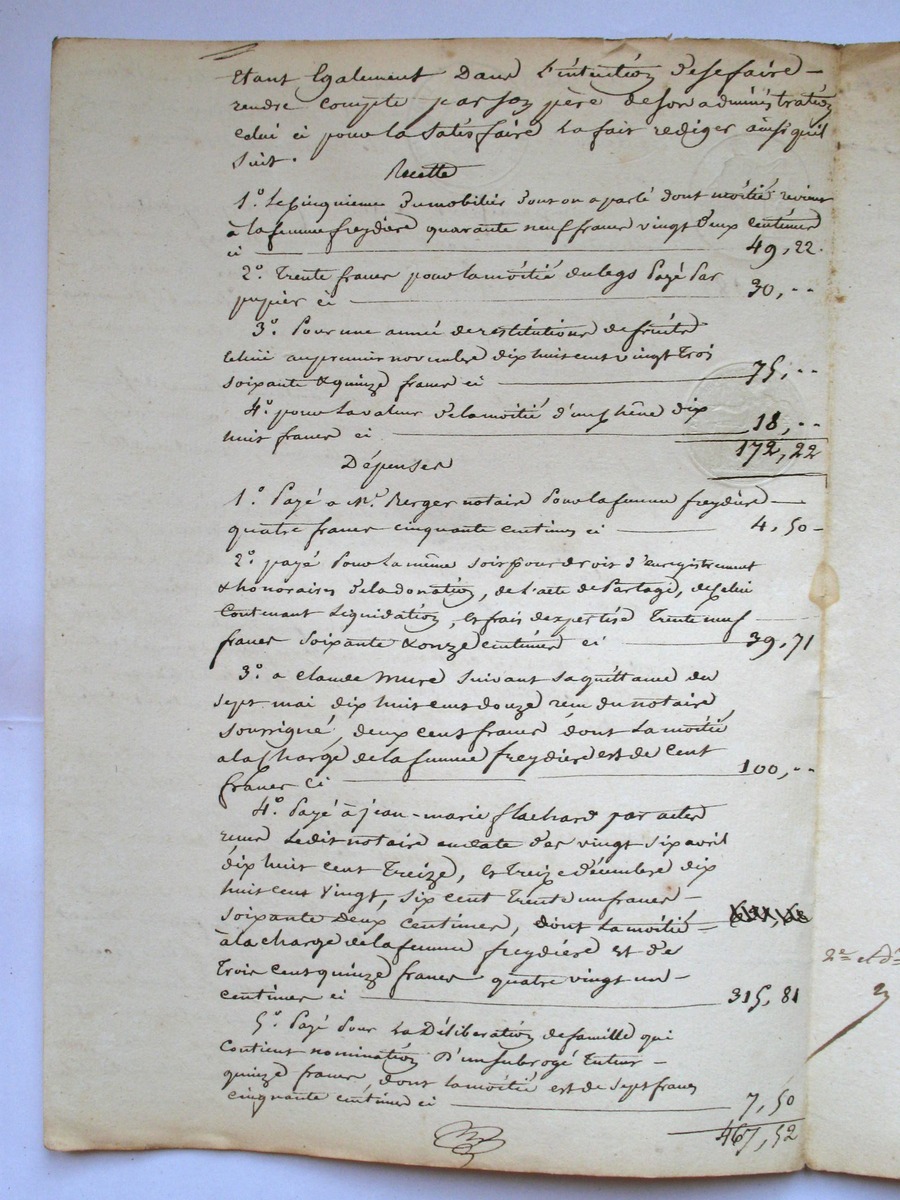 Etant Egalement Dans l'intention de se faire –
rendre compte par son père de son administration
celui ci pour la satisfaire la fait rediger ainsi qu'il
suit.
Recette
1.° Le cinquieme du mobilier dont on a parlé dont moitié revient
à la femme freydière quarante neuf francs vingt deux centimes
ci 49,22.
2.° Trente francs pour la moitié du legs Payé Par
ci 30,--
3.° Pour une année de restitutions de fruits
échue au premier novembre dix huit cent vingt Trois
soixante & quinze francs ci 75,--
4.° pour la valeur de la moitié d'un chêne dix
huit francs ci 18,--
172,22
Dépenses
1.° Payé a Mr. Berger notaire Pour la femme freydière
quatre francs cinquante centimes ci 4,50 –
2.° payé Pour la même soit pour droit d'enregistrement
& honoraires de la donation, de l'acte de Partage, de celui
Contenant Liquidation, et frais d'expertise Trente neuf
francs soixante & onze centimes ci 39,71
3.° a Claude Mure suivant sa quittance du
sept mai dix huit cent douze reçu du notaire
soussigné, deux cent francs dont la moitié
a la charge de la femme freydière est de Cent
francs Ci 100,--
4.° Payé à jean-marie flachard par actes
reçus Ledit notaire en date des vingt six avril
dix huit cent Treize, et Treize décembre dix
huit cent Vingt, six cent Trente un francs –
soixante deux centimes, dont la moitié –
à la charge de la femme freydière est de
Trois cent quinze francs quatre vingt un –
centimes ci 315,81
5.° Payé Pour la Délibération de famille qui
Contient nomination d'un subrogé Tuteur –
quinze francs, dont la moitié est de sept francs
cinquante centimes ci 7,50
467,52
2e